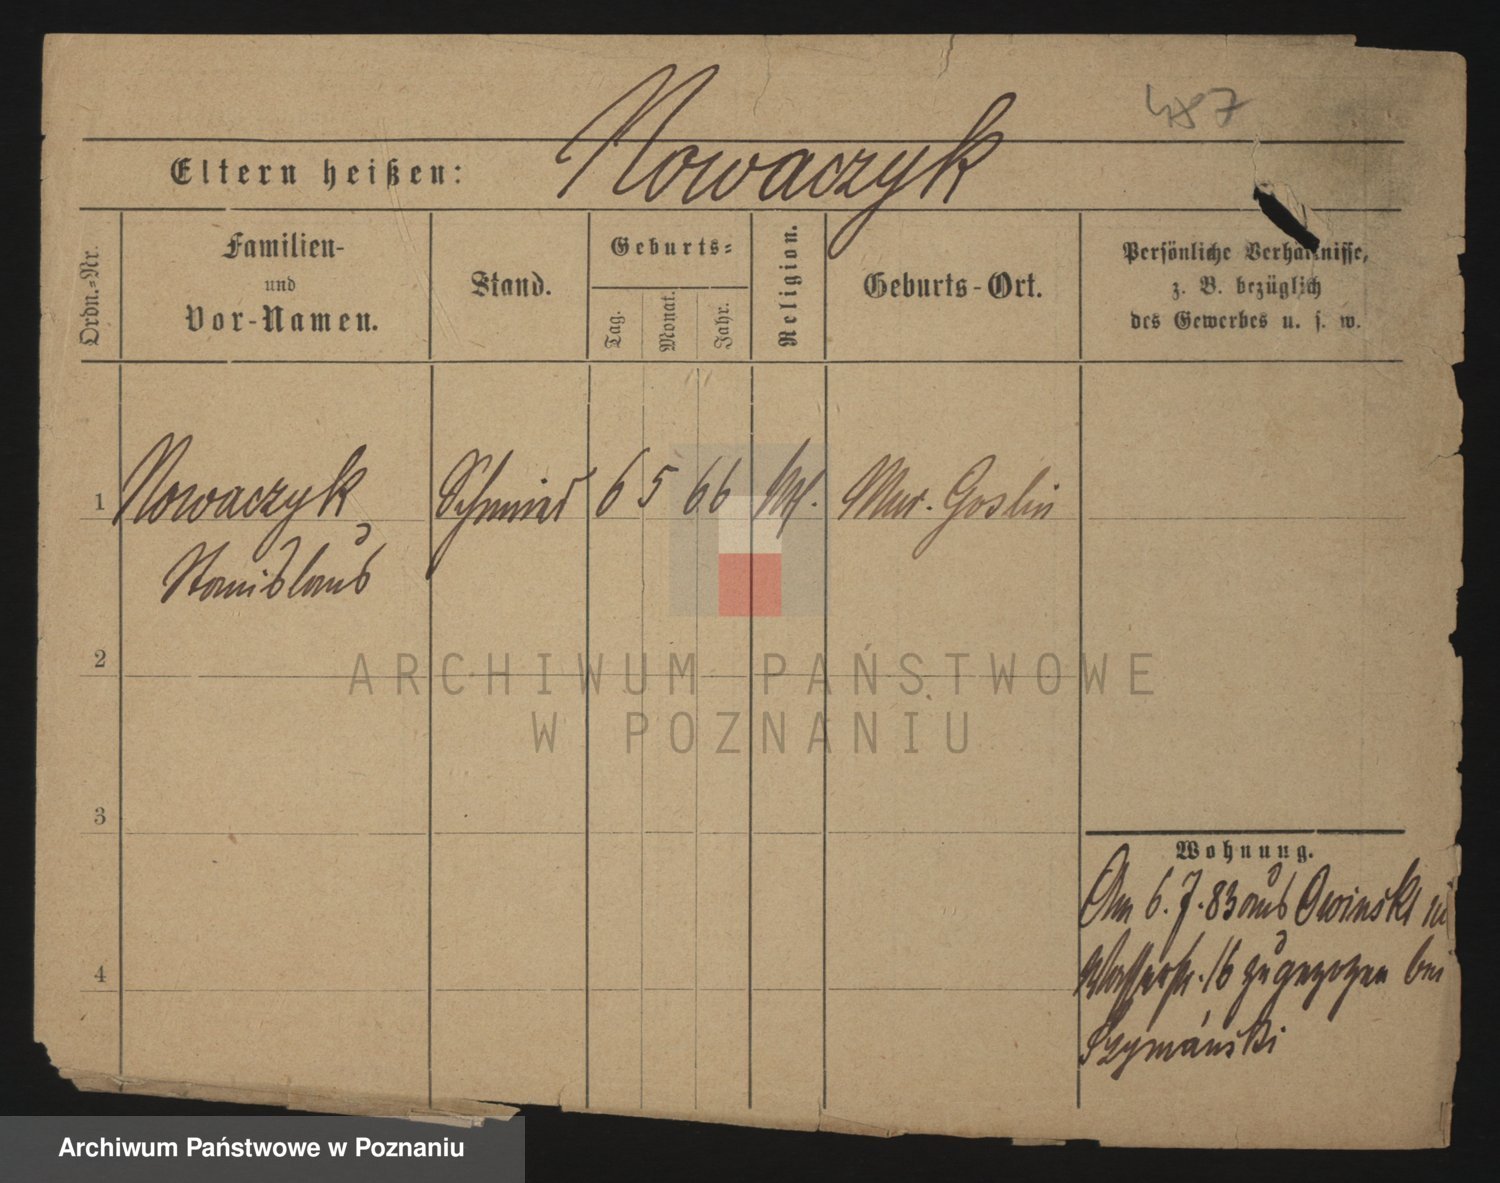 487
Eltern heißen: Nowaczyk
Ordn.-Nr.
Familien-
und
Vor-Namen.
Stand.
Geburts-
Tag.
Monat.
Jahr.
Religion.
Geburts-Ort.
Persönliche Verhältnisse,
z. B. bezüglich
des Gewerbes u. s. w.
1 Nowaczyk Schmied 6 5 66 Mur. Goslin
Stanislaus
2
ARCHIWUM PAŃSTWOWE
W POZNANIU
3
Wohnung.
Am 6.7.83 aus Owinsk in
Wasserstr. 16 zugezogen bei
4
Szymański
Archiwum Państwowe w Poznaniu